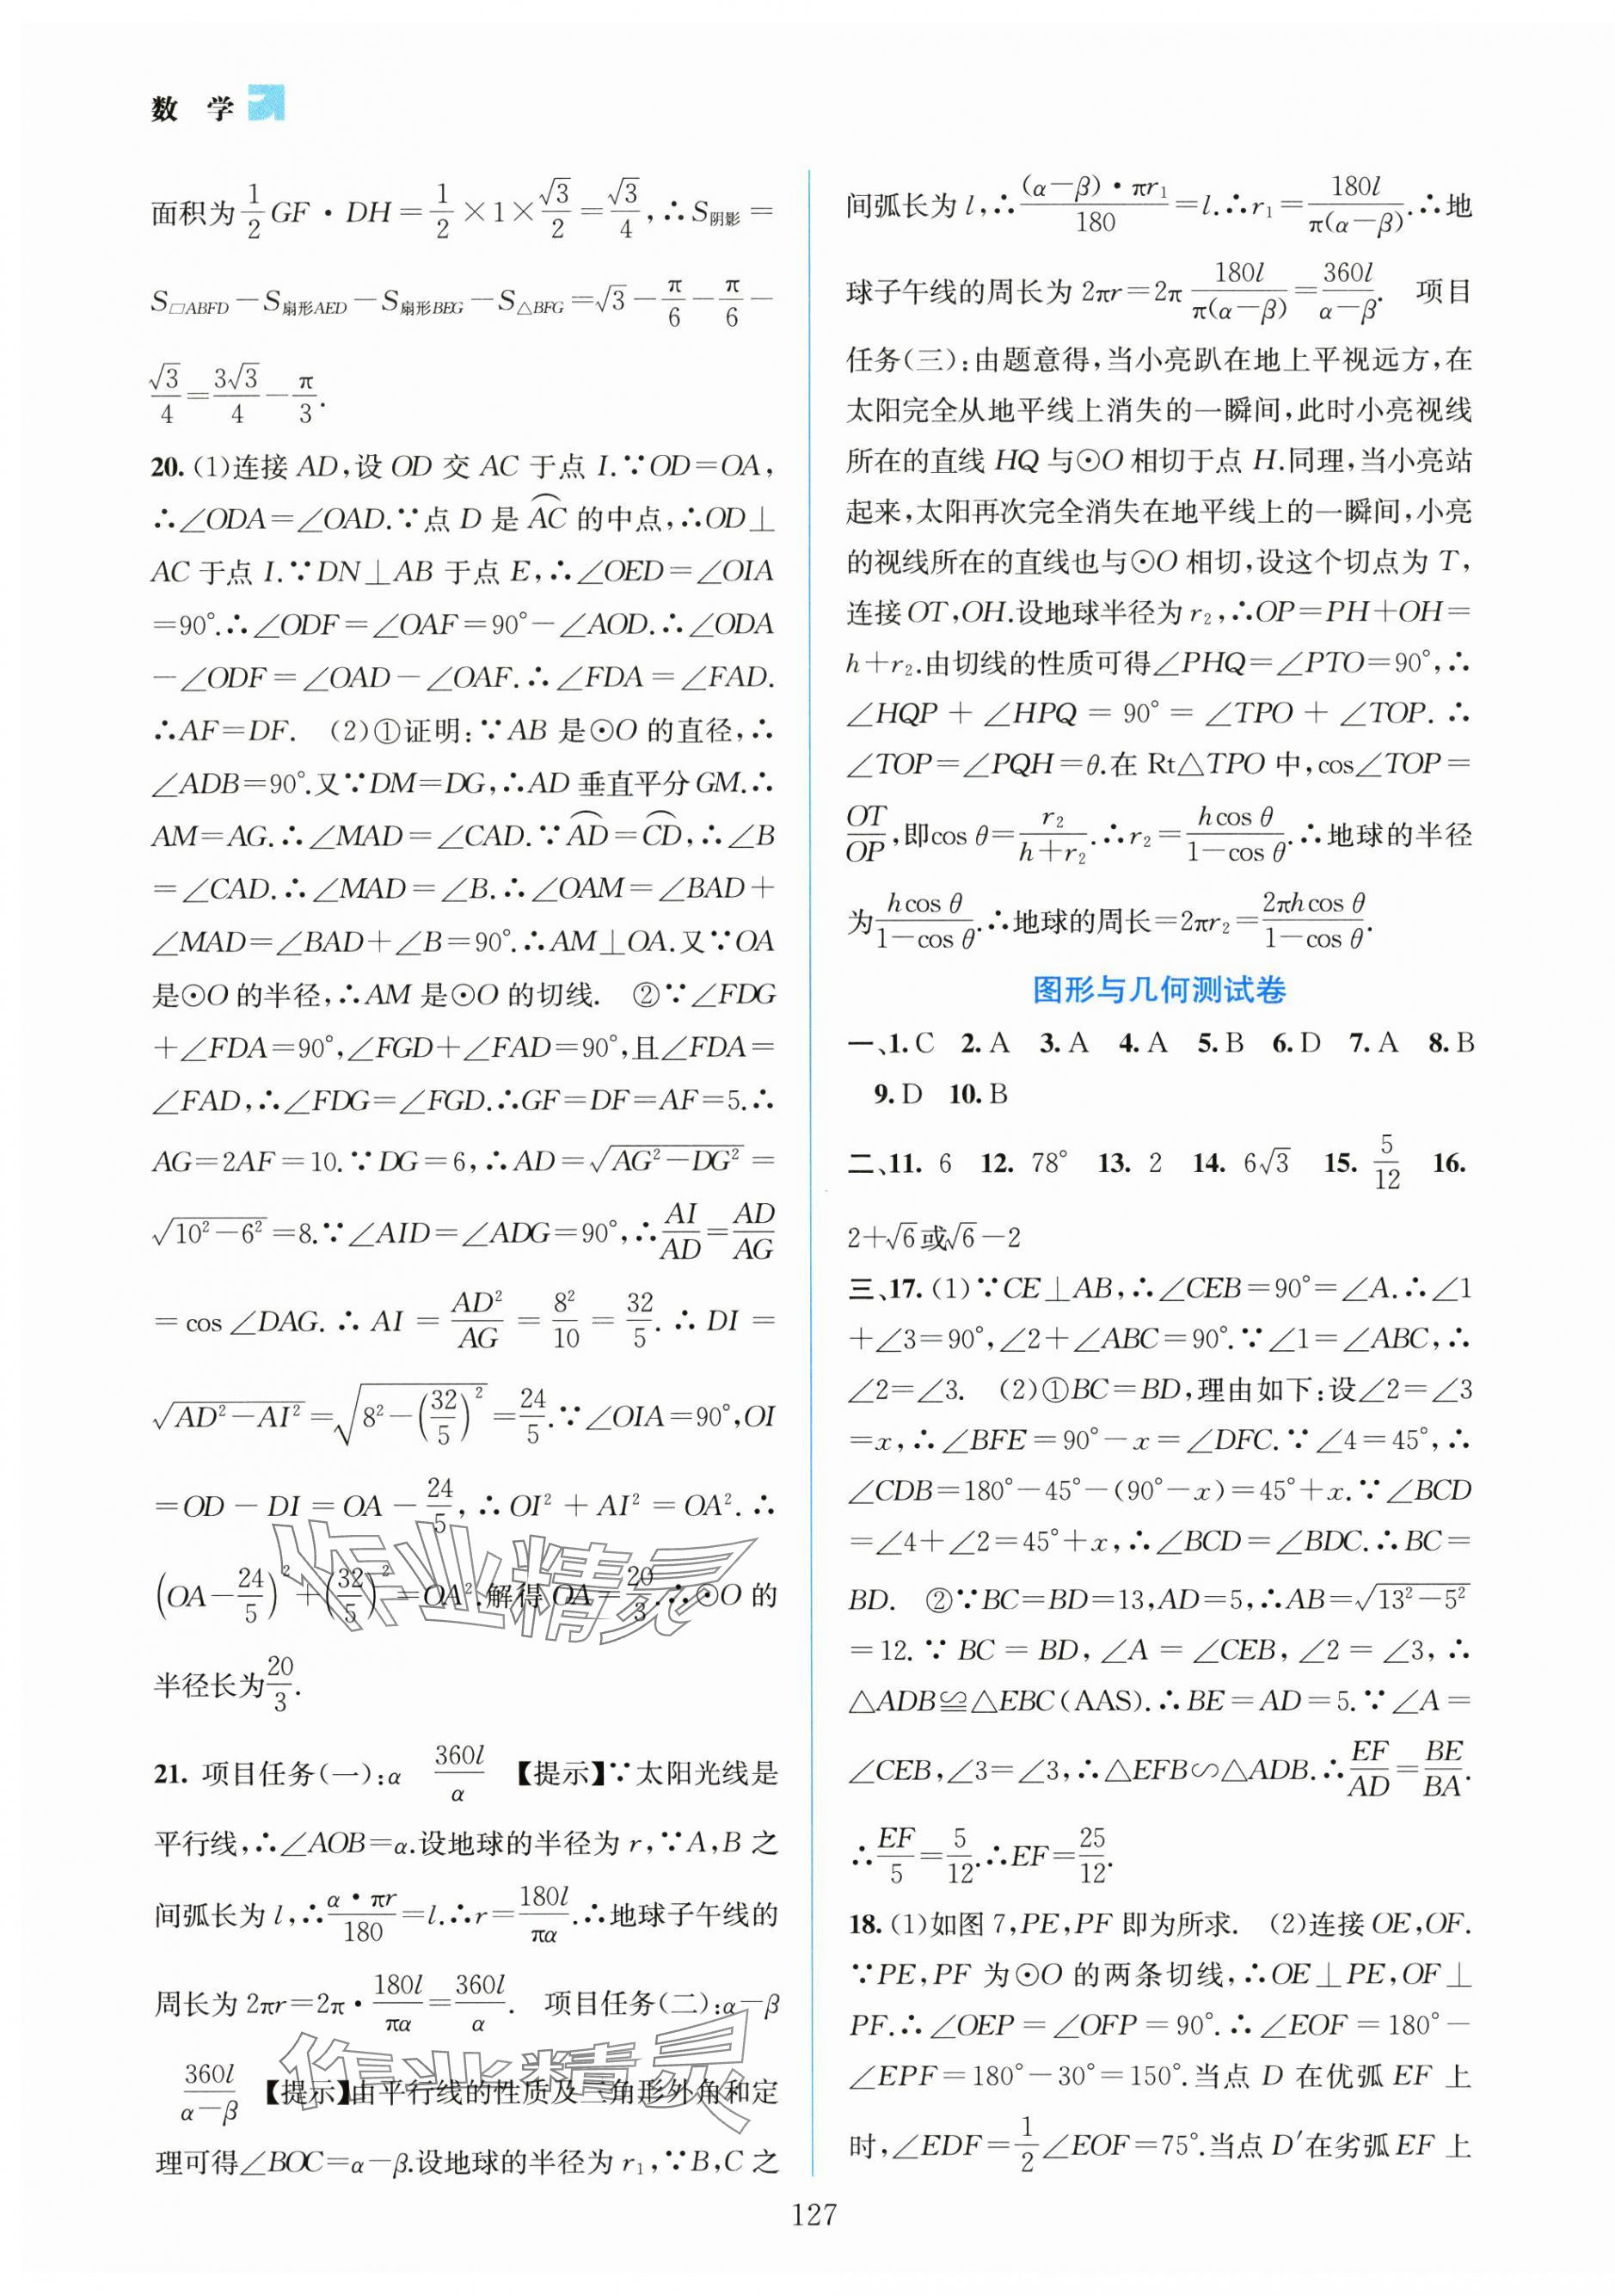 数 学
面积为$\frac{1}{2}$GF·DH=$\frac{1}{2}$×1×$\frac{\sqrt{3}}{2}$=$\frac{\sqrt{3}}{4}$,∴S阴影=
S▱ABFD−S扇形AED−S扇形BEG−S△BFG=$\sqrt{3}$−$\frac{π}{6}$−$\frac{π}{6}$−
$\frac{\sqrt{3}}{4}$=$\frac{3\sqrt{3}}{4}$−$\frac{π}{3}$.
20. (1)连接 AD,设 OD 交 AC 于点 I.∵OD=OA,
∴∠ODA=∠OAD.∵点 D 是$\overset{\frown}{AC}$的中点,∴OD⊥
AC于点 I.∵DN⊥AB 于点 E,∴∠OED=∠OIA
=90°.∴∠ODF=∠OAF=90°−∠AOD.∴∠ODA
−∠ODF=∠OAD−∠OAF.∴∠FDA=∠FAD.
∴AF=DF. (2)①证明:∵AB 是⊙O 的直径,∴
∠ADB=90°.又∵DM=DG,∴AD 垂直平分GM.∴
AM=AG.∴∠MAD=∠CAD.∵$\overset{\frown}{AD}$=$\overset{\frown}{CD}$,∴∠B
=∠CAD.∴∠MAD=∠B.∴∠OAM=∠BAD+
∠MAD=∠BAD+∠B=90°.∴AM⊥OA.又∵OA
是⊙O的半径,∴AM 是⊙O 的切线. ②∵∠FDG
+∠FDA=90°,∠FGD+∠FAD=90°,且∠FDA=
∠FAD,∴∠FDG=∠FGD.∴GF=DF=AF=5.∴
AG=2AF=10.∵DG=6,∴AD=$\sqrt{AG^2-DG^2}$=
$\sqrt{10^2-6^2}$=8.∵∠AID=∠ADG=90°,∴$\frac{AI}{AD}$=$\frac{AD}{AG}$
=cos∠DAG.∴AI=$\frac{AD^2}{AG}$=$\frac{8^2}{10}$=$\frac{32}{5}$.∴DI=
$\sqrt{AD^2-AI^2}$=$\sqrt{8^2-\left(\frac{32}{5}\right)^2}$=$\frac{24}{5}$.∵∠OIA=90°,OI
=OD−DI=OA−$\frac{24}{5}$,∴OI²+AI²=OA².∴
$\left(OA-\frac{24}{5}\right)^2$+$\left(\frac{32}{5}\right)^2$=OA².解得OA=$\frac{20}{3}$.∴⊙O的
半径长为$\frac{20}{3}$.
21. 项目任务(一):α $\frac{360l}{α}$ 【提示】∵太阳光线是
平行线,∴∠AOB=α.设地球的半径为 r,∵A,B之
间弧长为 l,∴$\frac{α·πr}{180}$=l.∴r=$\frac{180l}{πα}$.∴地球子午线的
周长为2πr=2π·$\frac{180l}{πα}$=$\frac{360l}{α}$. 项目任务(二):α−β
$\frac{360l}{α-β}$ 【提示】由平行线的性质及三角形外角和定
理可得∠BOC=α−β.设地球的半径为 r₁,∵B,C之
间弧长为 l,∴$\frac{(α-β)·πr_1}{180}$=l.∴r₁=$\frac{180l}{π(α-β)}$.∴地
球子午线的周长为 2πr=2π$\frac{180l}{π(α-β)}$=$\frac{360l}{α-β}$. 项目
任务(三):由题意得,当小亮趴在地上平视远方,在
太阳完全从地平线上消失的一瞬间,此时小亮视线
所在的直线 HQ 与⊙O相切于点 H.同理,当小亮站
起来,太阳再次完全消失在地平线上的一瞬间,小亮
的视线所在的直线也与⊙O 相切,设这个切点为 T,
连接OT,OH.设地球半径为 r₂,∴OP=PH+OH=
h+r₂.由切线的性质可得∠PHQ=∠PTO=90°,∴
∠HQP+∠HPQ=90°=∠TPO+∠TOP.∴
∠TOP=∠PQH=θ.在 Rt△TPO 中,cos∠TOP=
$\frac{OT}{OP}$,即cos θ=$\frac{r_2}{h+r_2}$.∴r₂=$\frac{h\cos θ}{1-\cos θ}$.∴地球的半径
为$\frac{h\cos θ}{1-\cos θ}$.∴地球的周长=2πr₂=$\frac{2πh\cos θ}{1-\cos θ}$.
图形与几何测试卷
一、1. C 2. A 3. A 4. A 5. B 6. D 7. A 8. B
9. D 10. B
二、11. 6 12. 78° 13. 2 14. 6$\sqrt{3}$ 15. $\frac{5}{12}$ 16.
2+$\sqrt{6}$或$\sqrt{6}$−2
三、17. (1)∵CE⊥AB,∴∠CEB=90°=∠A.∴∠1
+∠3=90°,∠2+∠ABC=90°.∵∠1=∠ABC,∴
∠2=∠3. (2)①BC=BD,理由如下:设∠2=∠3
=x,∴∠BFE=90°−x=∠DFC.∵∠4=45°,∴
∠CDB=180°−45°−(90°−x)=45°+x.∵∠BCD
=∠4+∠2=45°+x,∴∠BCD=∠BDC.∴BC=
BD. ②∵BC=BD=13,AD=5,∴AB=$\sqrt{13^2-5^2}$
=12.∵BC=BD,∠A=∠CEB,∠2=∠3,∴
△ADB≌△EBC(AAS).∴BE=AD=5.∵∠A=
∠CEB,∠3=∠3,∴△EFB∽△ADB.∴$\frac{EF}{AD}$=$\frac{BE}{BA}$.
∴$\frac{EF}{5}$=$\frac{5}{12}$.∴EF=$\frac{25}{12}$.
18. (1)如图 7,PE,PF 即为所求. (2)连接OE,OF.
∵PE,PF 为⊙O 的两条切线,∴OE⊥PE,OF⊥
PF.∴∠OEP=∠OFP=90°.∴∠EOF=180°−
∠EPF=180°−30°=150°.当点 D 在优弧EF 上
时,∠EDF=$\frac{1}{2}$∠EOF=75°.当点D′在劣弧EF 上
127
作业精灵
作业精灵